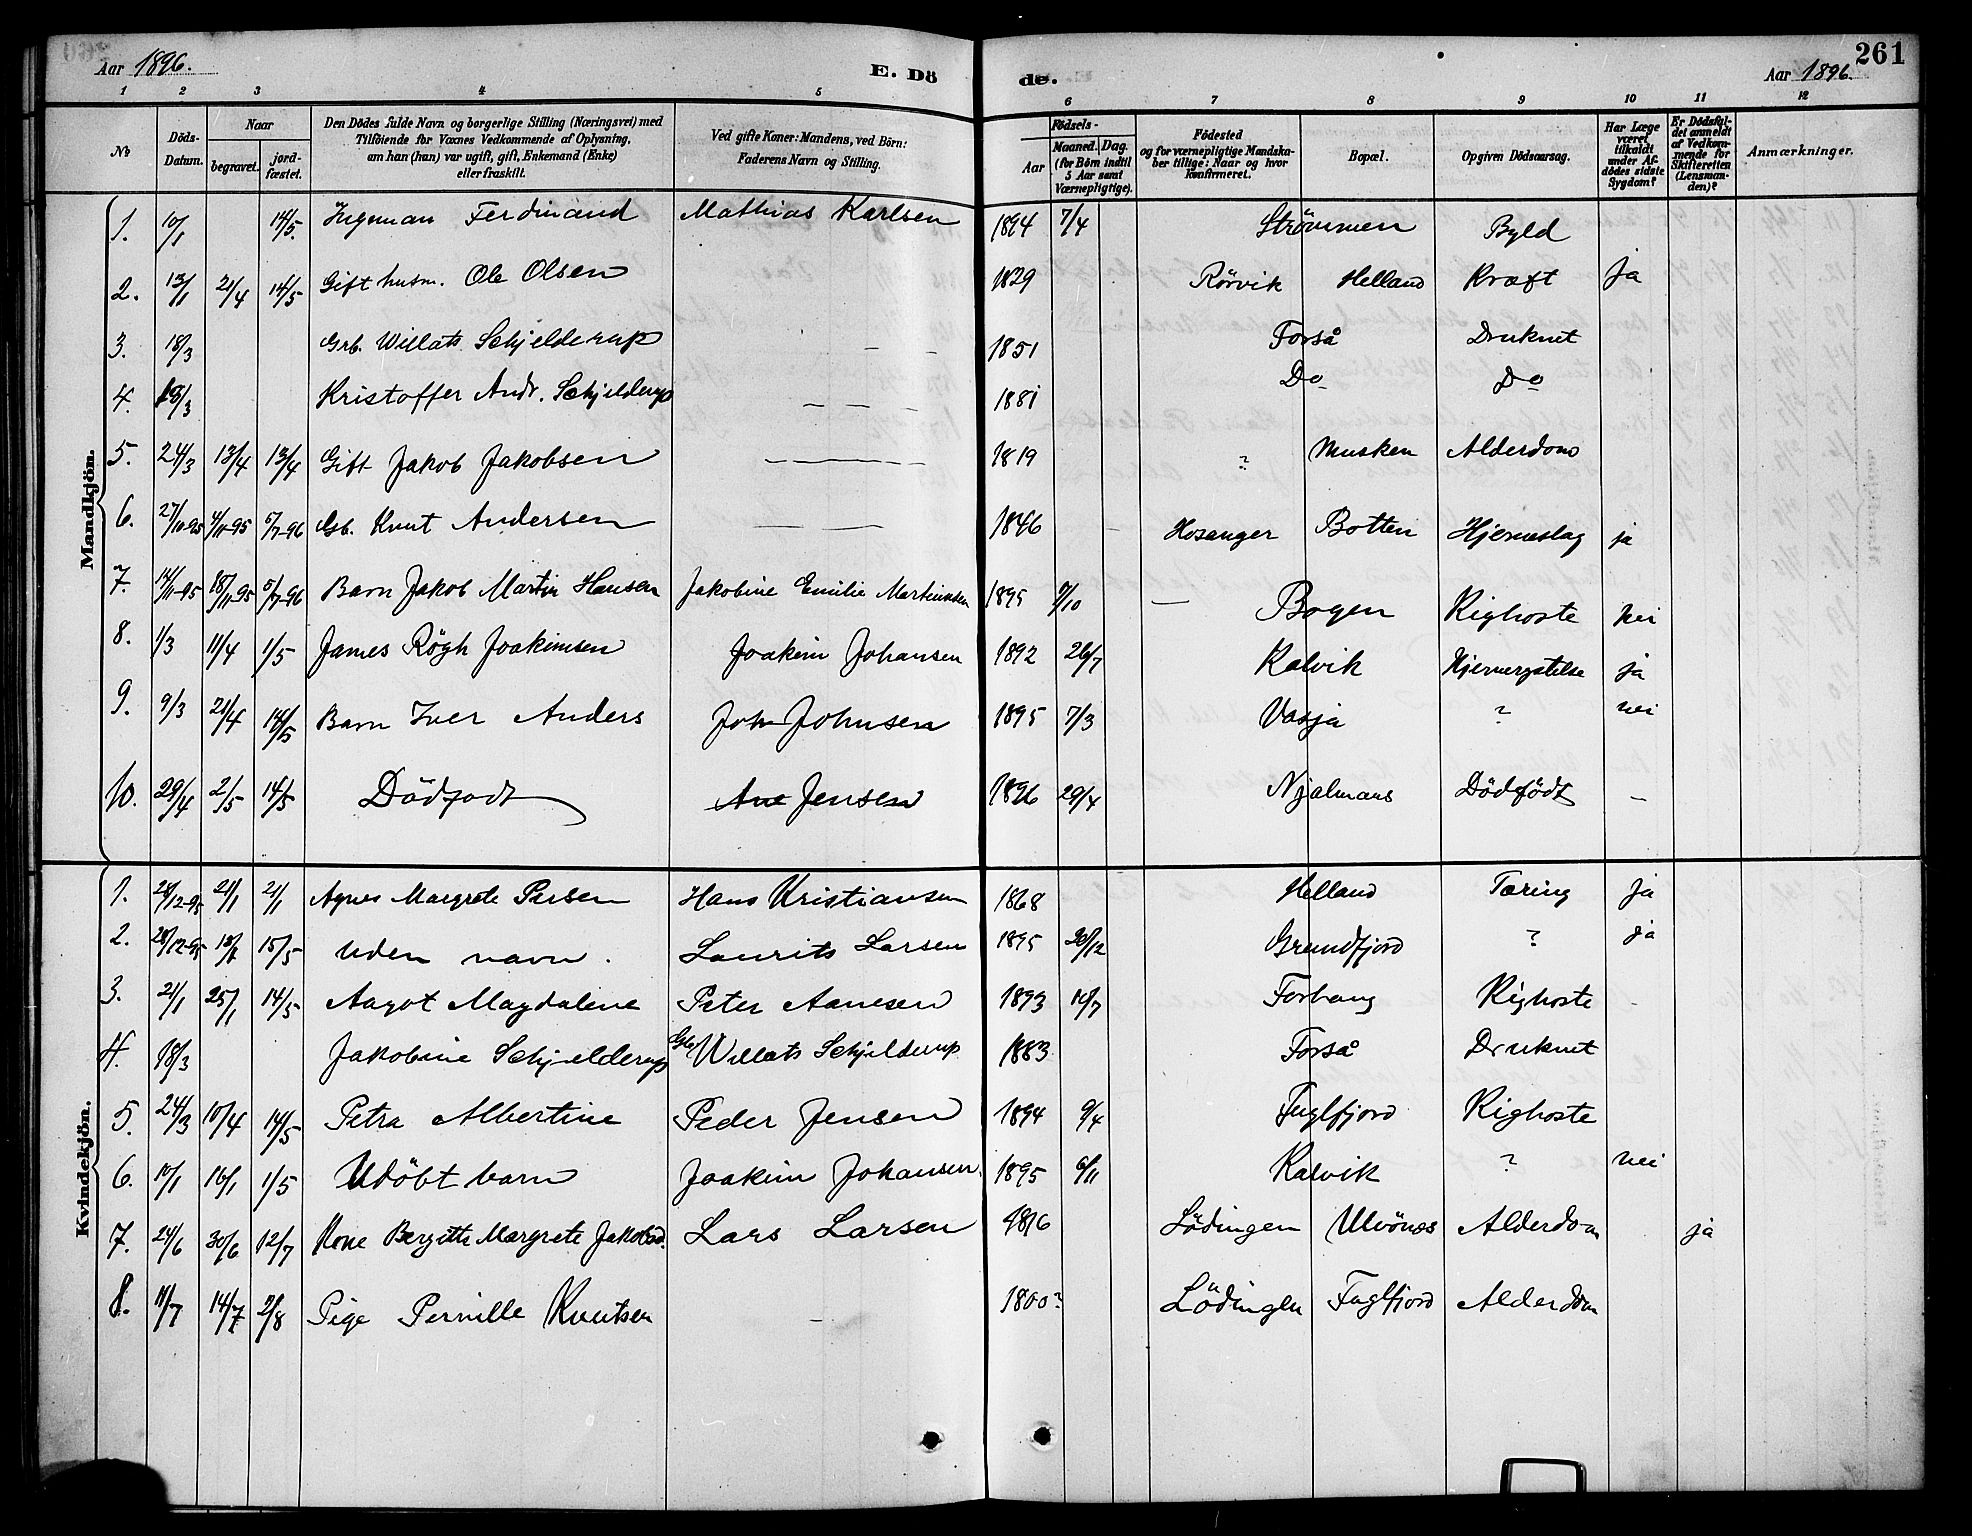 261
Aar 1896. E. Dö de. Aar 1896.
1 2 3 4 5 6 7 8 9 10 11 12
No
Döds-Datum.
Naar
begravet.
jord-fæstet.
Den Dödes fulde Navn og borgerlige Stilling (Næringsvei) med
Tilföiende for Voxnes Vedkommende af Oplysning,
om han (hun) var ugift, gift, Enkemand (Enke)
eller fraskilt.
Ved gifte Koner: Mandens, ved Börn:
Faderens Navn og Stilling.
Födsels-
Aar
Maaned. Dag.
(for Börn indtil
5 Aar samt
Værnepligtige).
Födested
og for værnepligtige Mandska-
ber tillige: Naar og hvor
konfirmeret.
Bopæl.
Opgiven Dödsaarsag.
Har Læge
været
tilkaldt
under Af-
dödes sidste
Sygdom?
Er Dödsfal-
det anmeldt
af Vedkom-
mende for
Skifteretten
(Lensman-
den)?
Anmærkninger.
Mandkjön.
1. 10/1 14/5. Ingeman Ferdinand Mathias Karlsen 1894 7/4 Strömmen Byld
2. 13/1 21/4 14/5 Gift husm. Ole Olsen 1829 Rörvik Helland Kræft ja
3. 18/3 Grb. Willats Schjelderup — — 1851 Forså Druknet
4. 18/3 Kristoffer Andr. Schjelderup — — — 1881 Do Do
5. 24/3 13/4 13/4 Gift Jakob Jakobsen — — — 1819 ? Musken Alderdom
6. 27/10-95 4/11-95 5/7-96 Gb. Knut Andersen — — 1846 Hosanger Botten Hjerneslag ja
7. 14/11-95 18/11-95 5/7-96 Barn Jakob Martin Hansen Jakobine Emilie Martinsen 1895 7/10 — Bogen Kighoste nei
8. 1/3 11/4 1/5 James Rögh Joakimsen Joakim Johansen 1892 26/7 Kalvik Hjernerystelse ja
9. 9/3 21/4 14/5 Barn Iver Anders Joh Johnsen 1895 7/3 Vasja ? nei
10. 29/4 2/5 14/5 Dödfødt Ane Jensen 1896 29/4 Njalmars Dödfödt —
Kvindekjön.
1. 28/12-95 2/1 2/1 Agnes Margrete Persen Hans Kristiansen 1868 Helland Tæring ja
2. 28/12-95 15/5 uden navn. Laurits Larsen 1895 20/12 Grundfjord ? ja
3. 21/1 25/1 14/5 Aagot Magdalene Peter Aanesen 1893 10/7 Kighoste
4. 18/3 Jakobine Schjelderup Gbr Willats Schjelderup 1883 Forså Druknet
5. 24/3 10/4 14/5 Petra Albertine Peder Jensen 1894 9/4 Fuglfjord Kighoste
6. 10/1 16/1 1/5 Udöbt barn Joakim Johansen. 1895 6/11 Kalvik ? nei
7. 24/6 30/6 12/7 Kone Bergitte Margrete Jakobsd. Lars Larsen 1816 Lödingen Ulvönes Alderdom ja
8. 11/7 14/7 2/8 Pige Pernille Knutsen — 1800? Lödingen Fuglfjord Alderdom